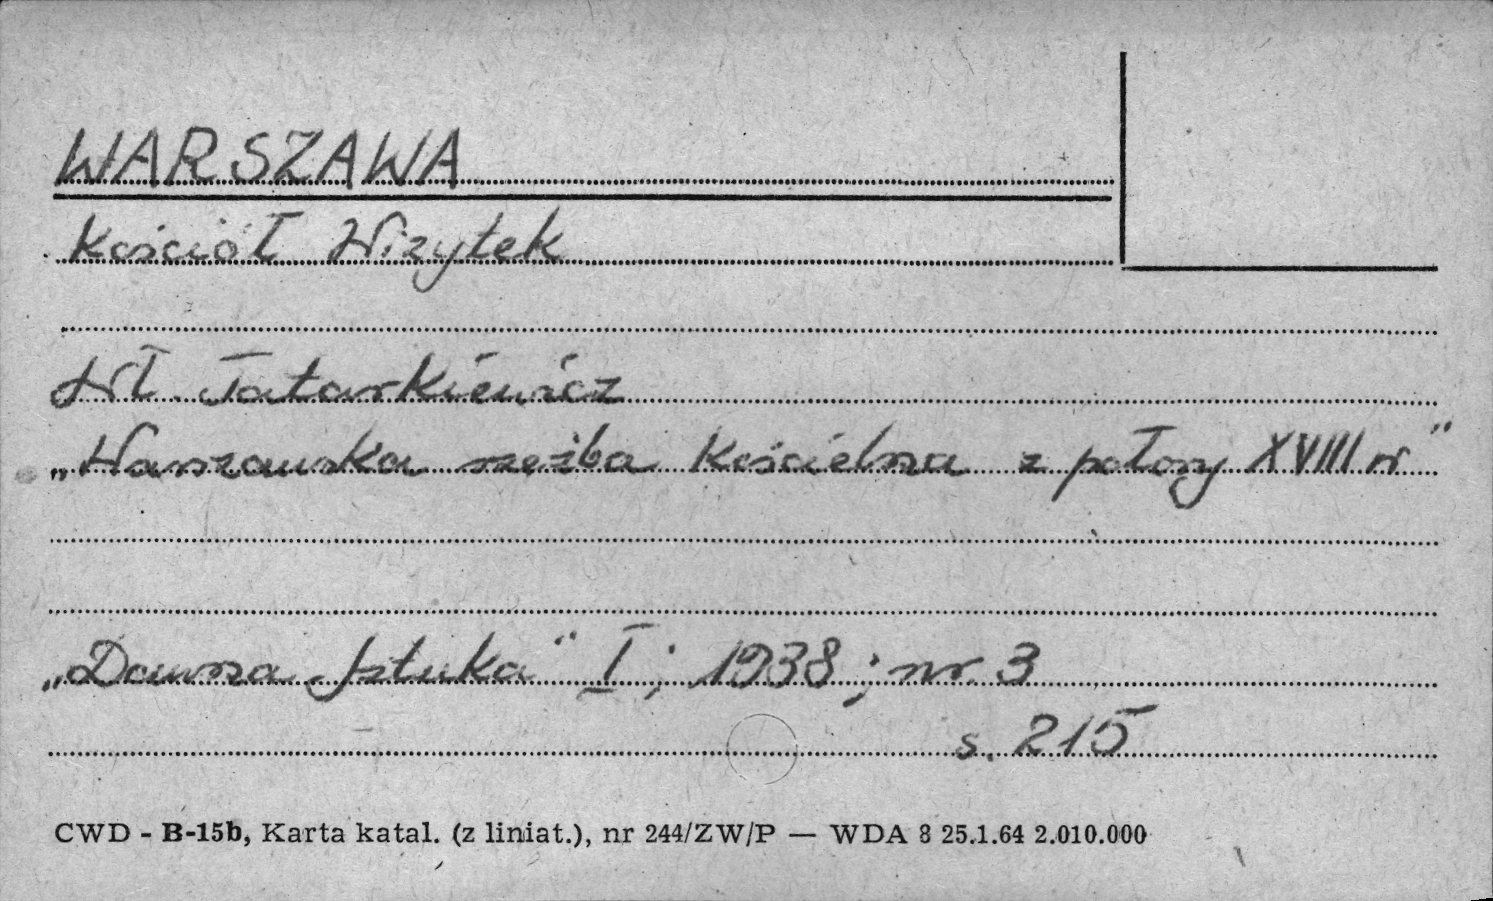 WARSZAWA
Kościół Wizytek
Wł. Tatarkiewicz
„Warszawska rzeźba kościelna z połowy XVIII w"
„Dawna Sztuka" I; 1938; nr. 3
s. 215
CWD - B-15b, Karta katal. (z liniat.), nr 244/ZW/P — WDA 8 25.1.64 2.010.000